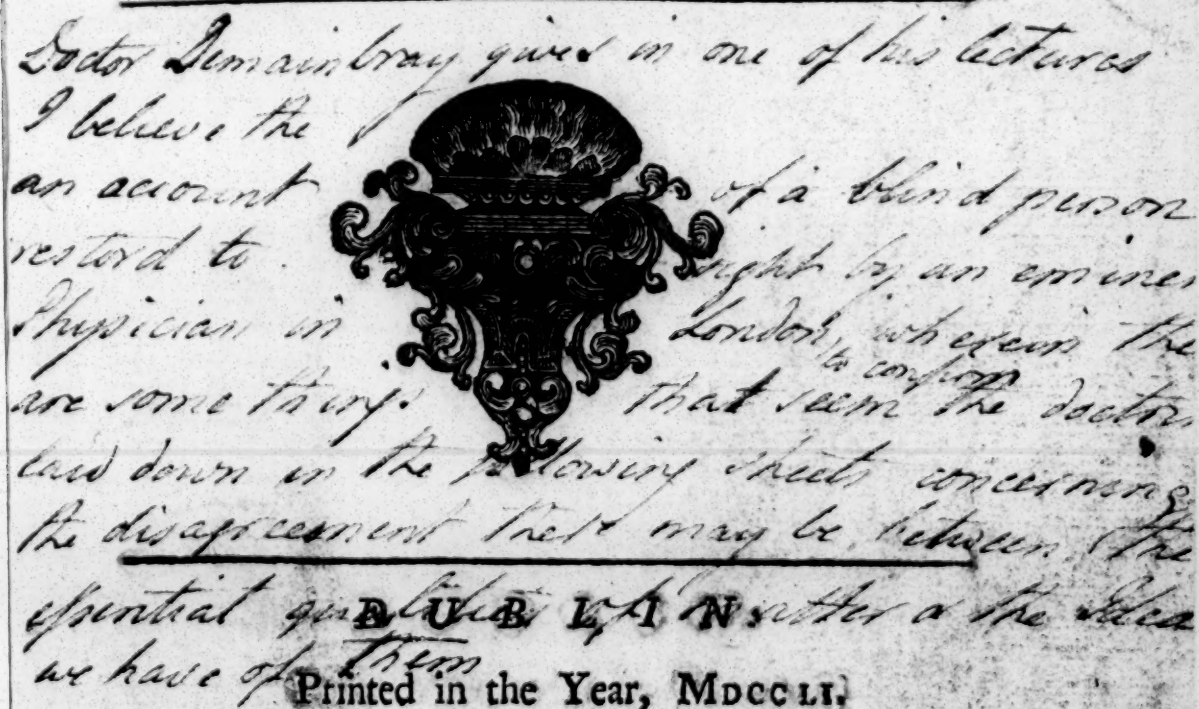 Doctor Demainbray gives in one of his lectures
I believe the
an account of a blind person
restord to sight by an eminen
Physician in London, wherein the
to confirm
are some things that seem the doctrin
laid down in the following sheets concerning
the disagreement that may be between the
essential qualities of matter & the Idea
DUBLIN:
we have of them
Printed in the Year, MDCCLI.